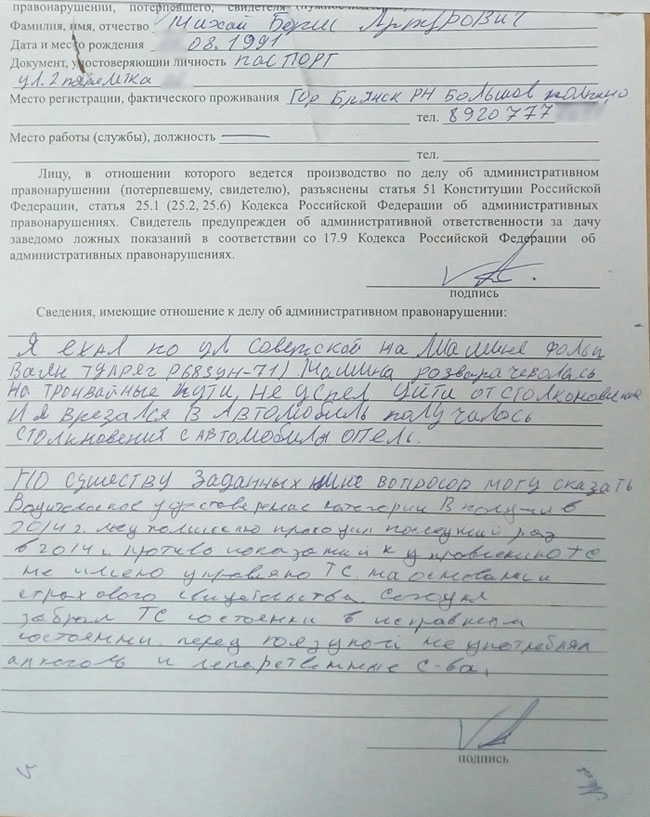 правонарушении, потерпевшего, свидетеля
Фамилия, имя, отчество Михай
Дата и место рождения 08.1991
Документ, удостоверяющий личность паспорт
ул. 2
Место регистрации, фактического проживания Гор Брянск РН Большов
тел. 8920 777
Место работы (службы), должность —
тел.
Лицу, в отношении которого ведется производство по делу об административном
правонарушении (потерпевшему, свидетелю), разъяснены статья 51 Конституции Российской
Федерации, статья 25.1 (25.2, 25.6) Кодекса Российской Федерации об административных
правонарушениях. Свидетель предупрежден об административной ответственности за дачу
заведомо ложных показаний в соответствии со 17.9 Кодекса Российской Федерации об
административных правонарушениях.
подпись
Сведения, имеющие отношение к делу об административном правонарушении:
Я ехал по ул Советской на машине фольц
ваген Машина розворачевалась
на тронвайные пути, не успел уйти от столконовения
И я врезался в Автомобиль получалось
столкновения с автомобилы опель.
По существу заданных мне вопросов могу сказать
Водительское удостоверение категории В получил в
2014 г. медкомиссию проходил последний раз
в 2014 г. противопоказаний к управлению ТС
не имею управляю ТС на основании
страхового свидетельства. Сегодня
забрал ТС состоянки в исправном
состоянии. перед поездкой не употреблял
алкоголь и с-ва.
подпись